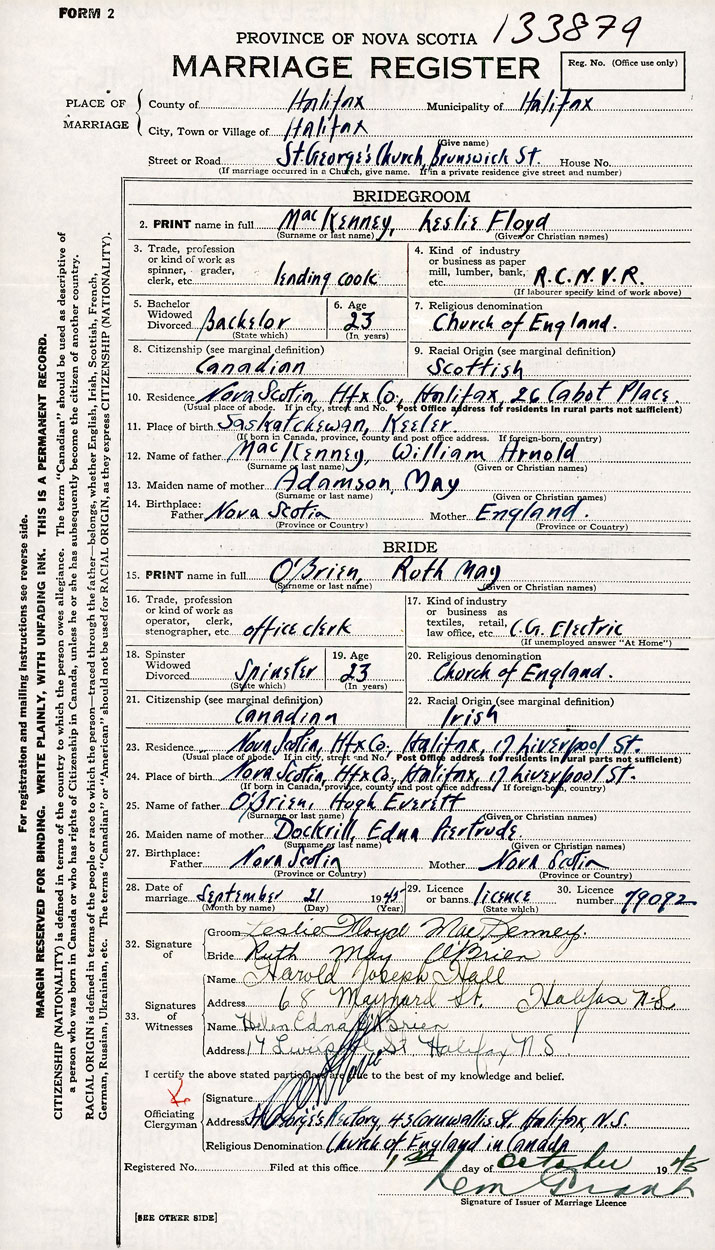 FORM 2
133879
PROVINCE OF NOVA SCOTIA
MARRIAGE REGISTER
Reg. No. (Office use only)
PLACE OF MARRIAGE
County of Halifax Municipality of Halifax
City, Town or Village of Halifax
(Give name)
Street or Road St. George's Church, Brunswick St. House No.
(If marriage occurred in a Church, give name. If in a private residence give street and number)
BRIDEGROOM
2. PRINT name in full MacKenney, Leslie Floyd
(Surname or last name) (Given or Christian names)
3. Trade, profession or kind of work as spinner, grader, clerk, etc. leading cook
4. Kind of industry or business as paper mill, lumber, bank, etc. R.C.N.V.R.
(If labourer specify kind of work above)
5. Bachelor Widowed Divorced Bachelor
(State which)
6. Age 23
(In years)
7. Religious denomination
Church of England.
8. Citizenship (see marginal definition)
Canadian
9. Racial Origin (see marginal definition)
Scottish
10. Residence Nova Scotia, Hfx Co., Halifax, 26 Cabot Place.
(Usual place of abode. If in city, street and No. Post Office address for residents in rural parts not sufficient)
11. Place of birth Saskatchewan, Keeler.
(If born in Canada, province, county and post office address. If foreign-born, country)
12. Name of father MacKenney, William Arnold
(Surname or last name) (Given or Christian names)
13. Maiden name of mother Adamson, May
(Surname or last name) (Given or Christian names)
14. Birthplace: Father Nova Scotia Mother England.
(Province or Country) (Province or Country)
BRIDE
15. PRINT name in full O'Brien, Ruth May
(Surname or last name) (Given or Christian names)
16. Trade, profession or kind of work as operator, clerk, stenographer, etc. office clerk
17. Kind of industry or business as textiles, retail, law office, etc. C.G. Electric
(If unemployed answer "At Home")
18. Spinster Widowed Divorced Spinster
(State which)
19. Age 23
(In years)
20. Religious denomination
Church of England.
21. Citizenship (see marginal definition)
Canadian
22. Racial Origin (see marginal definition)
Irish
23. Residence Nova Scotia, Hfx Co., Halifax, 17 Liverpool St.
(Usual place of abode. If in city, street and No. Post Office address for residents in rural parts not sufficient)
24. Place of birth Nova Scotia, Hfx Co., Halifax, 17 Liverpool St.
(If born in Canada, province, county and post office address. If foreign-born, country)
25. Name of father O'Brien, Hugh Everett
(Surname or last name) (Given or Christian names)
26. Maiden name of mother Dockrill, Edna Gertrude.
(Surname or last name) (Given or Christian names)
27. Birthplace: Father Nova Scotia Mother Nova Scotia
(Province or Country) (Province or Country)
28. Date of marriage September 21 1945
(Month by name) (Day) (Year)
29. Licence or banns licence
(State which)
30. Licence number 79092
32. Signature of
Groom Leslie Floyd MacKenney
Bride Ruth May O'Brien
33. Signatures of Witnesses
Name Harold Joseph Hall
Address 68 Maynard St. Halifax N-S
Name Helen Edna O'Brien
Address 17 Liverpool St Halifax N.S.
I certify the above stated particulars are true to the best of my knowledge and belief.
Officiating Clergyman
Signature
Address St. George's Rectory, 43 Cornwallis St. Halifax, N.S.
Religious Denomination Church of England in Canada
Registered No. Filed at this office 1st day of October 1945
Signature of Issuer of Marriage Licence
[SEE OTHER SIDE]
For registration and mailing instructions see reverse side.
MARGIN RESERVED FOR BINDING. WRITE PLAINLY, WITH UNFADING INK. THIS IS A PERMANENT RECORD.
CITIZENSHIP (NATIONALITY) is defined in terms of the country to which the person owes allegiance. The term "Canadian" should be used as descriptive of
a person who was born in Canada or who has rights of Citizenship in Canada, unless he or she has subsequently become the citizen of another country.
RACIAL ORIGIN is defined in terms of the people or race to which the person—traced through the father—belongs, whether English, Irish, Scottish, French,
German, Russian, Ukrainian, etc. The terms "Canadian" or "American" should not be used for RACIAL ORIGIN, as they express CITIZENSHIP (NATIONALITY).